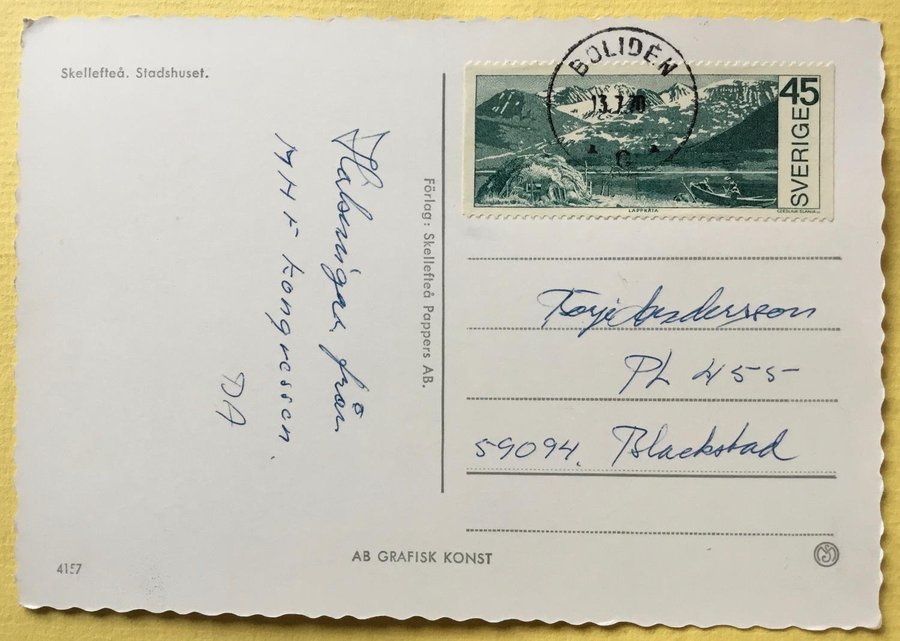 Skellefteå. Stadshuset.
Hälsningar från
MHF kongressen.
DA
Förlag: Skellefteå Pappers AB.
BOLIDEN
13.7.70
C
45
SVERIGE
LAPPKÅTA
CZESLAW SLANIA SC
Andersson
PL 455
59094. Blackstad
AB GRAFISK KONST
4157